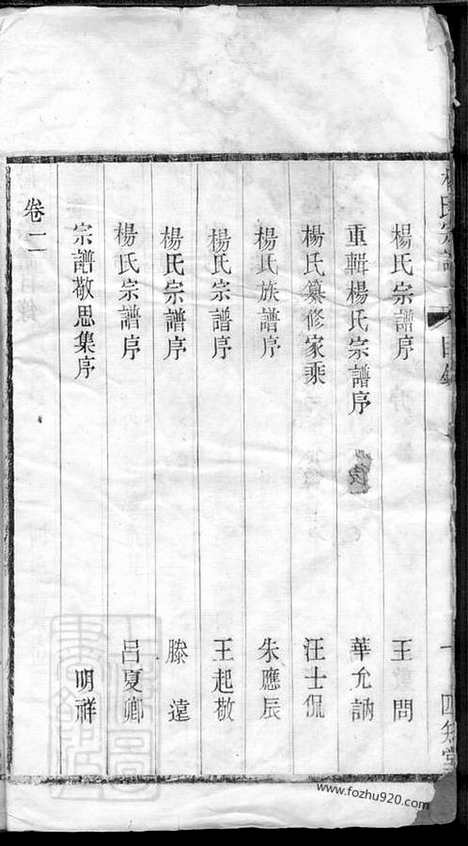 楊氏宗譜 目錄 一 四知堂
楊氏宗譜序 王問
重輯楊氏宗譜序 華允訥
楊氏纂修家乘 汪士侃
楊氏族譜序 朱應辰
楊氏宗譜序 王起敬
楊氏宗譜序 滕遠
楊氏宗譜序 呂夏卿
宗譜敬思集序 明祥
卷二
www.fozhu920.com